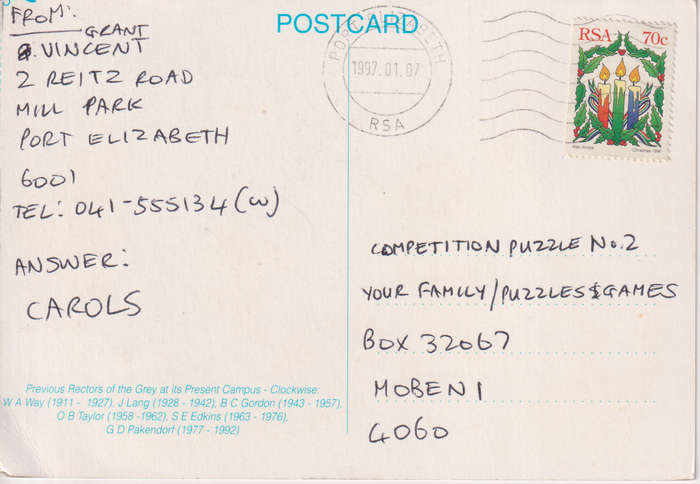 POSTCARD
FROM:
GRANT
VINCENT
2 REITZ ROAD
MILL PARK
PORT ELIZABETH
6001
TEL: 041-555134 (W)
ANSWER:
CAROLS
Previous Rectors of the Grey at its Present Campus - Clockwise:
W A Way (1911 - 1927), J Lang (1928 - 1942), B C Gordon (1943 - 1957),
O B Taylor (1958 -1962), S E Edkins (1963 - 1976),
G D Pakendorf (1977 - 1992)
PORT ELIZABETH
1997.01.07
RSA
RSA 70c
Christmas 1996
COMPETITION PUZZLE No.2
YOUR FAMILY/PUZZLES&GAMES
BOX 32067
MOBENI
4060